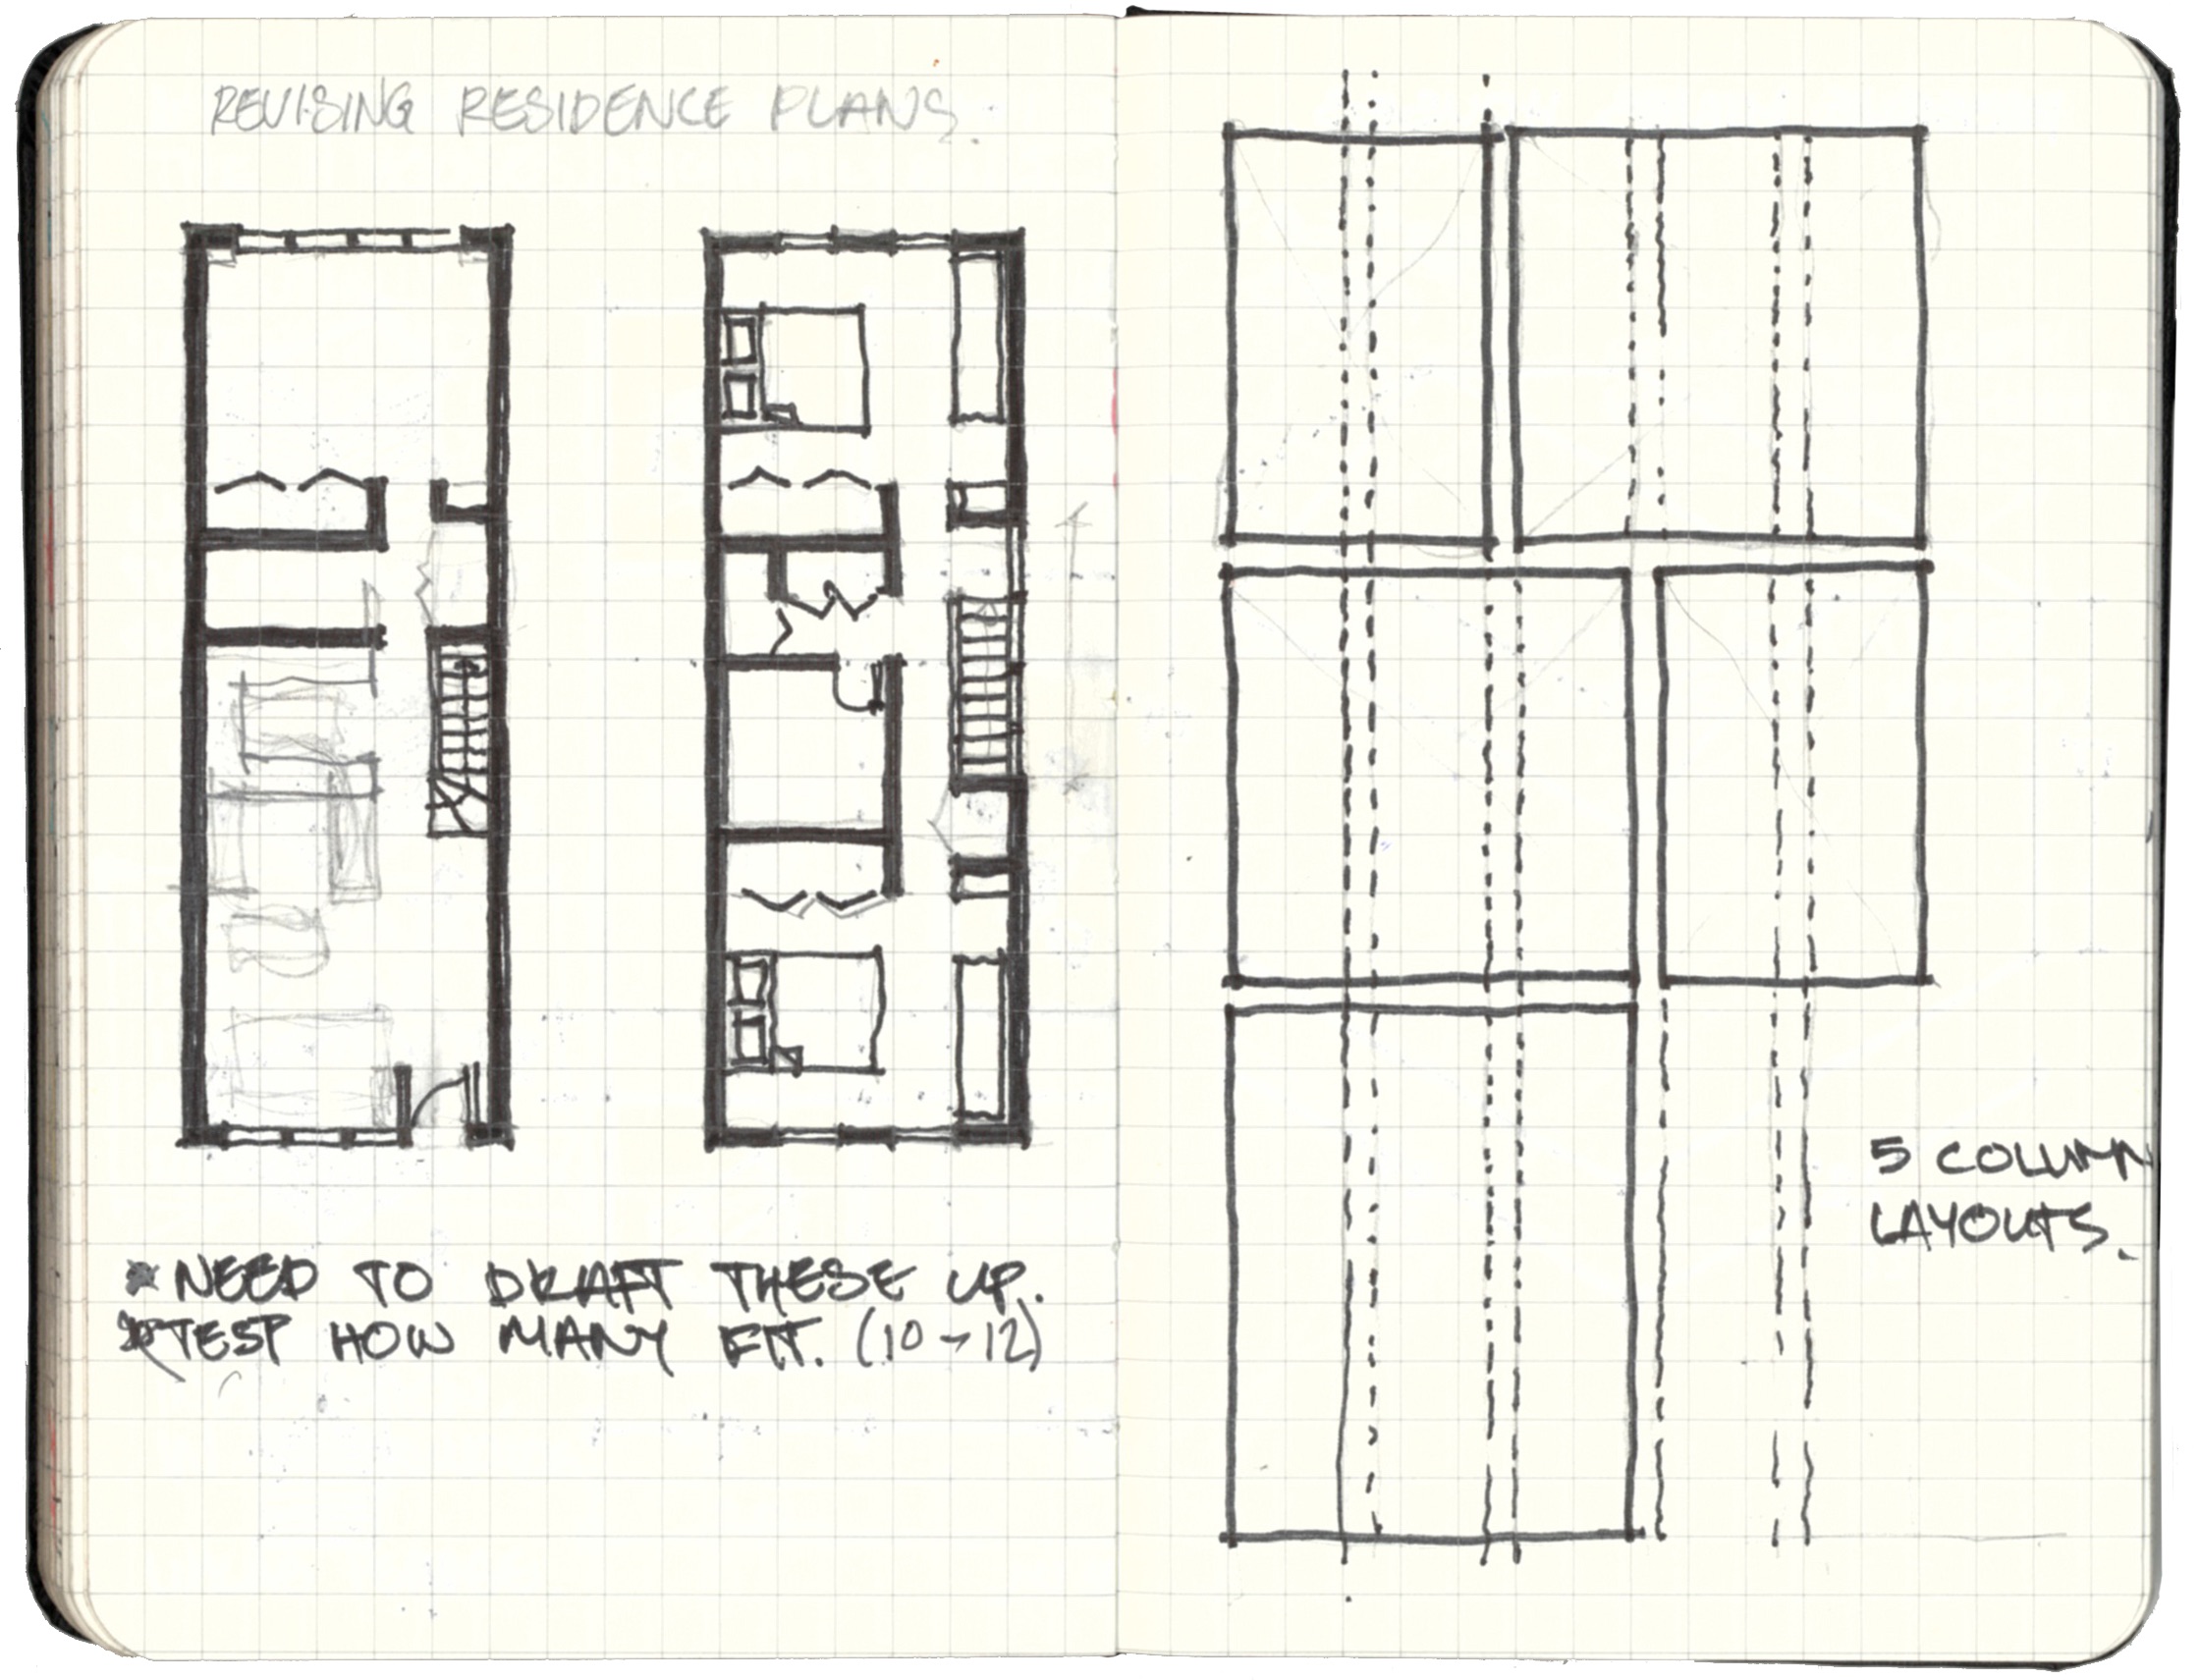 REVISING RESIDENCE PLANS.
*NEED TO DRAFT THESE UP.
*TEST HOW MANY FIT. (10→12)
5 COLUMN
LAYOUTS.